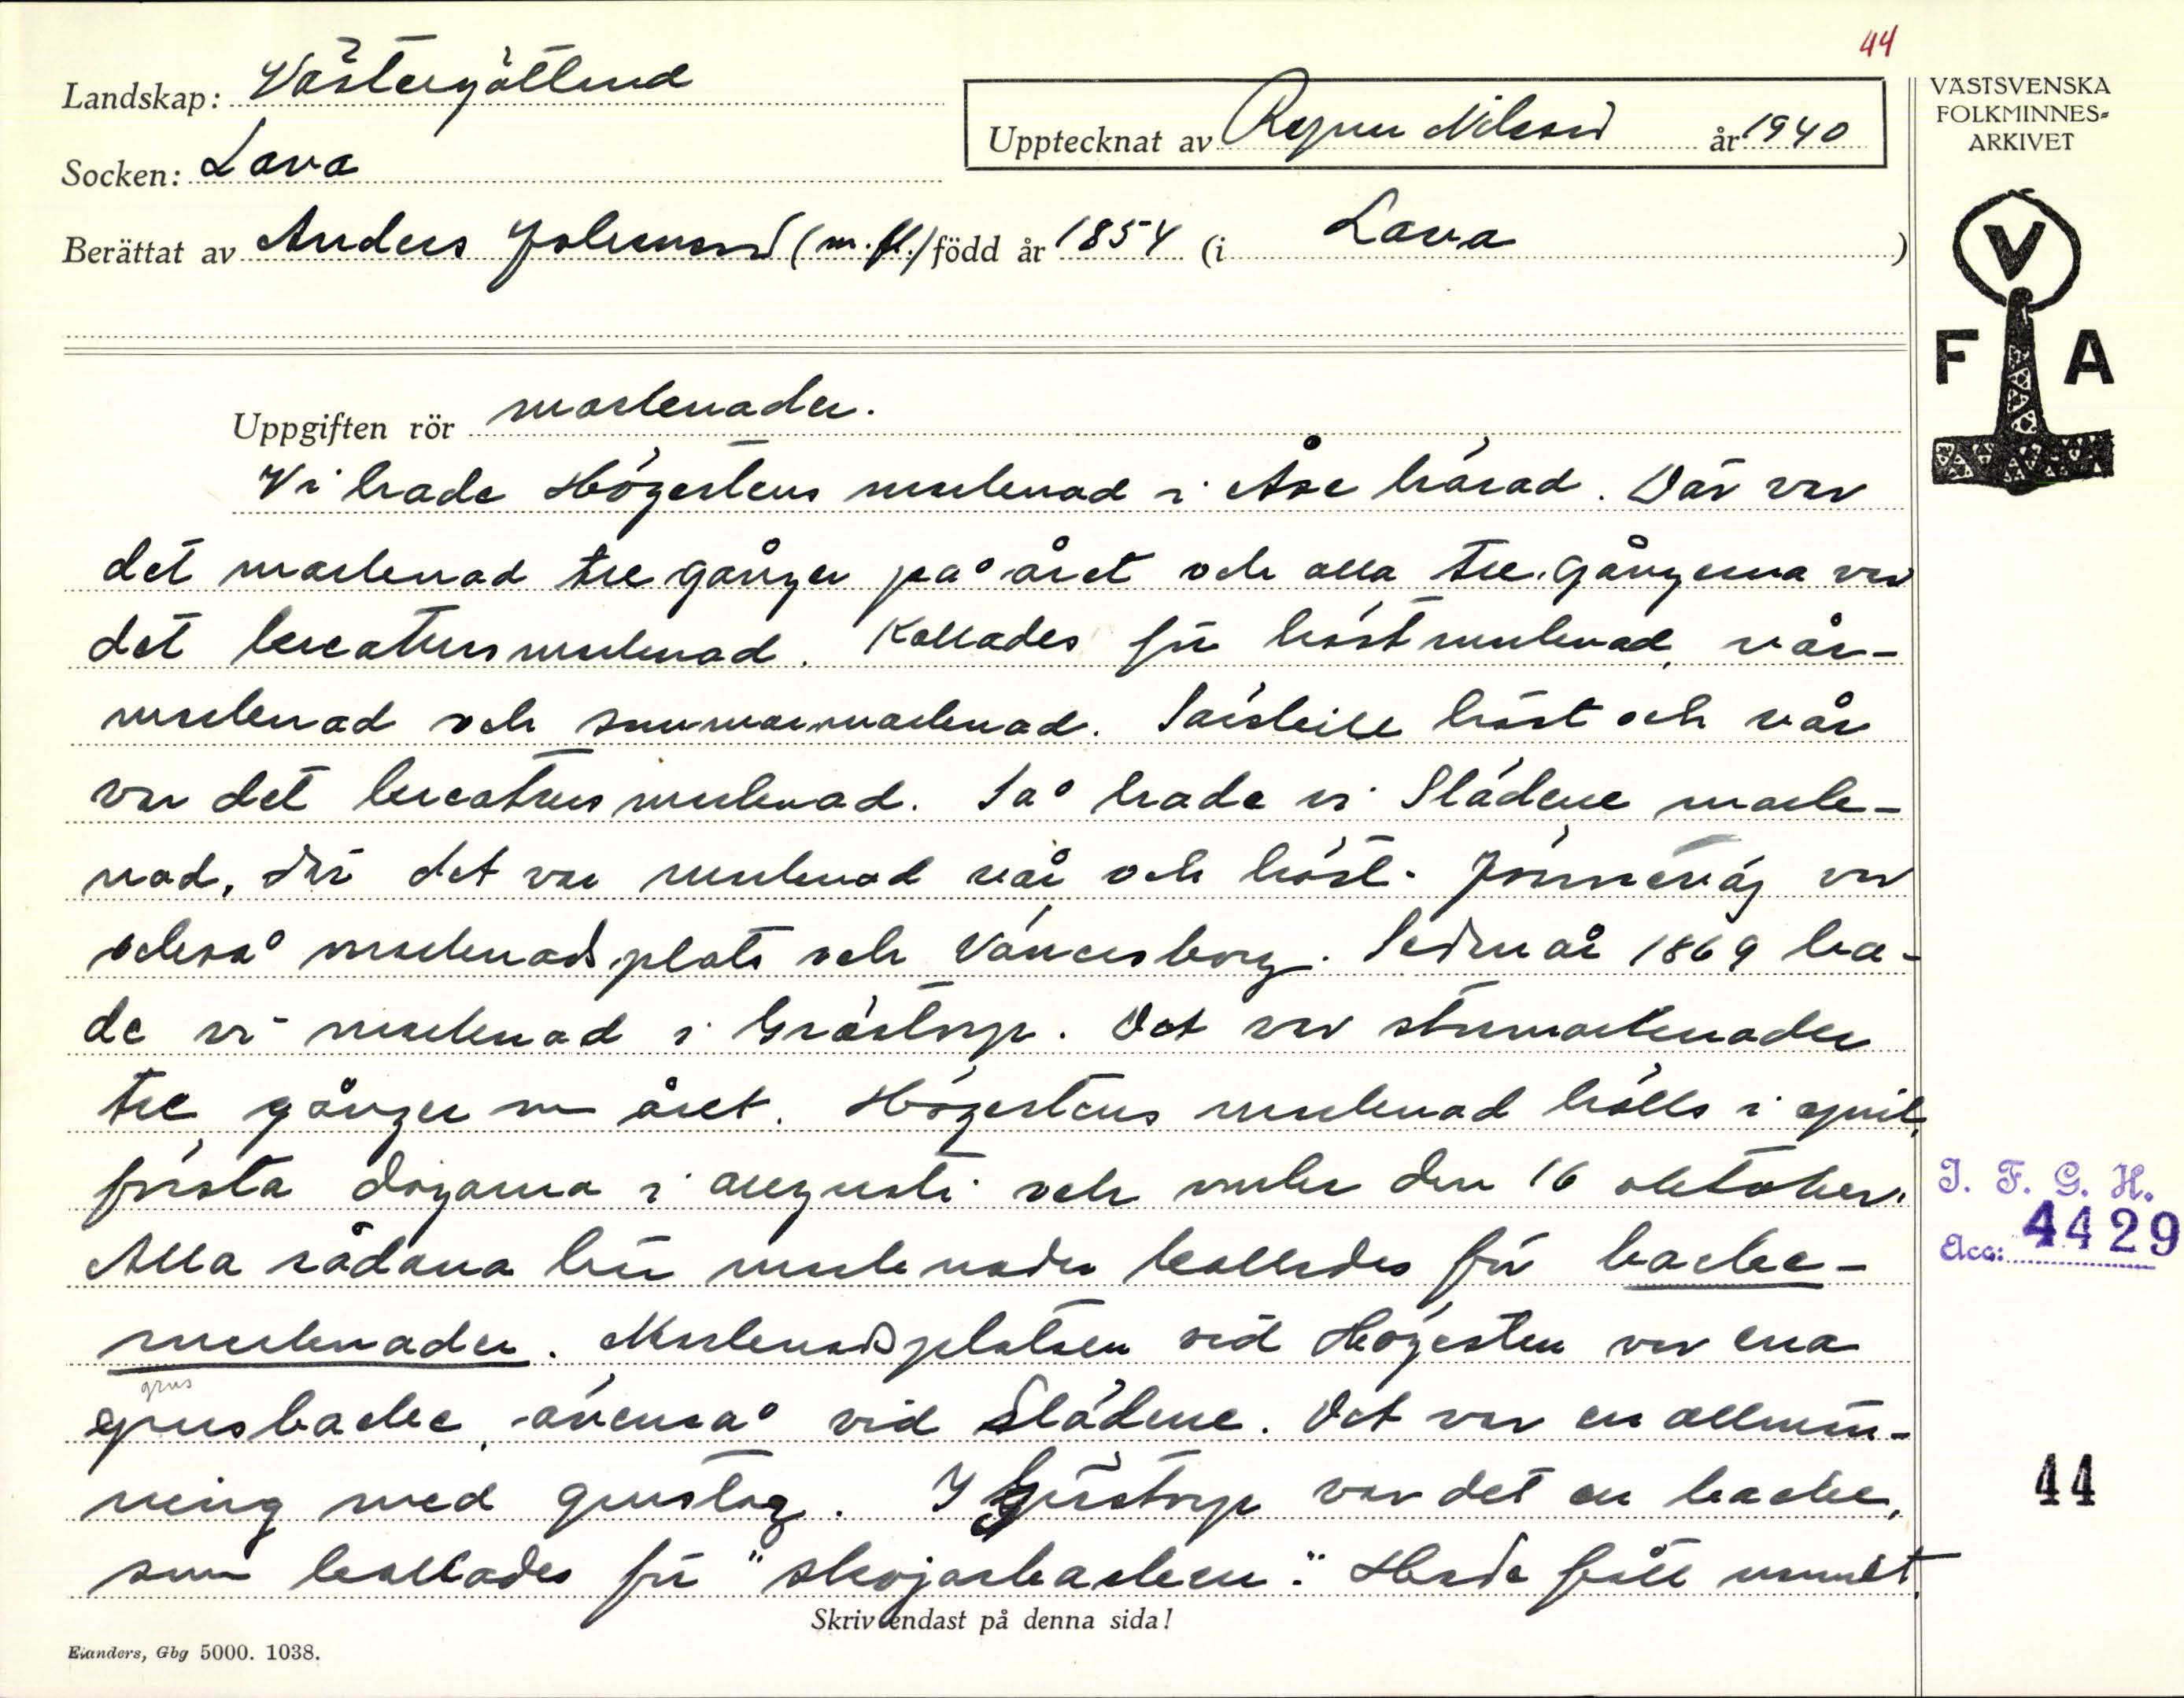 44
Landskap: Västergötland
VÄSTSVENSKA
FOLKMINNES=
ARKIVET
Upptecknat av Ragnar Nilsson år 1940
Socken: Lava
Berättat av Anders Johansson (m.fl.) född år 1854 (i Lava)
V
F A
Uppgiften rör marknader.
Vi hade Högestens marknad i Åse härad. Där var
det marknad tre gånger på året och alla tre gångerna var
det kreatursmarknad. Kallades för höstmarknad, vår-
marknad och sommarmarknad. Särskilt höst och vår
var det kreatursmarknad. Så hade vi Slädene mark-
nad, där det var marknad vår och höst. Jonneväg var
också marknadsplats och Vänersborg. Sedan år 1869 ha-
de vi marknad i Grästorp. Det var stormarknader
tre gånger om året. Högestens marknad hölls i april,
första dagarna i augusti och under den 16 oktober.
Alla sådana här marknader kallades för backe-
marknader. Marknadsplatsen vid Högesten var ena
grus
grusbacke, ävenså vid Slädene. Det var en allmän-
ning med grustag. I Grästorp var det en backe,
som kallades för "skojarbacken". Hade fått namnet,
Skriv endast på denna sida!
Elanders, Gbg 5000. 1038.
I. F. G. H.
Acc: 4429
44